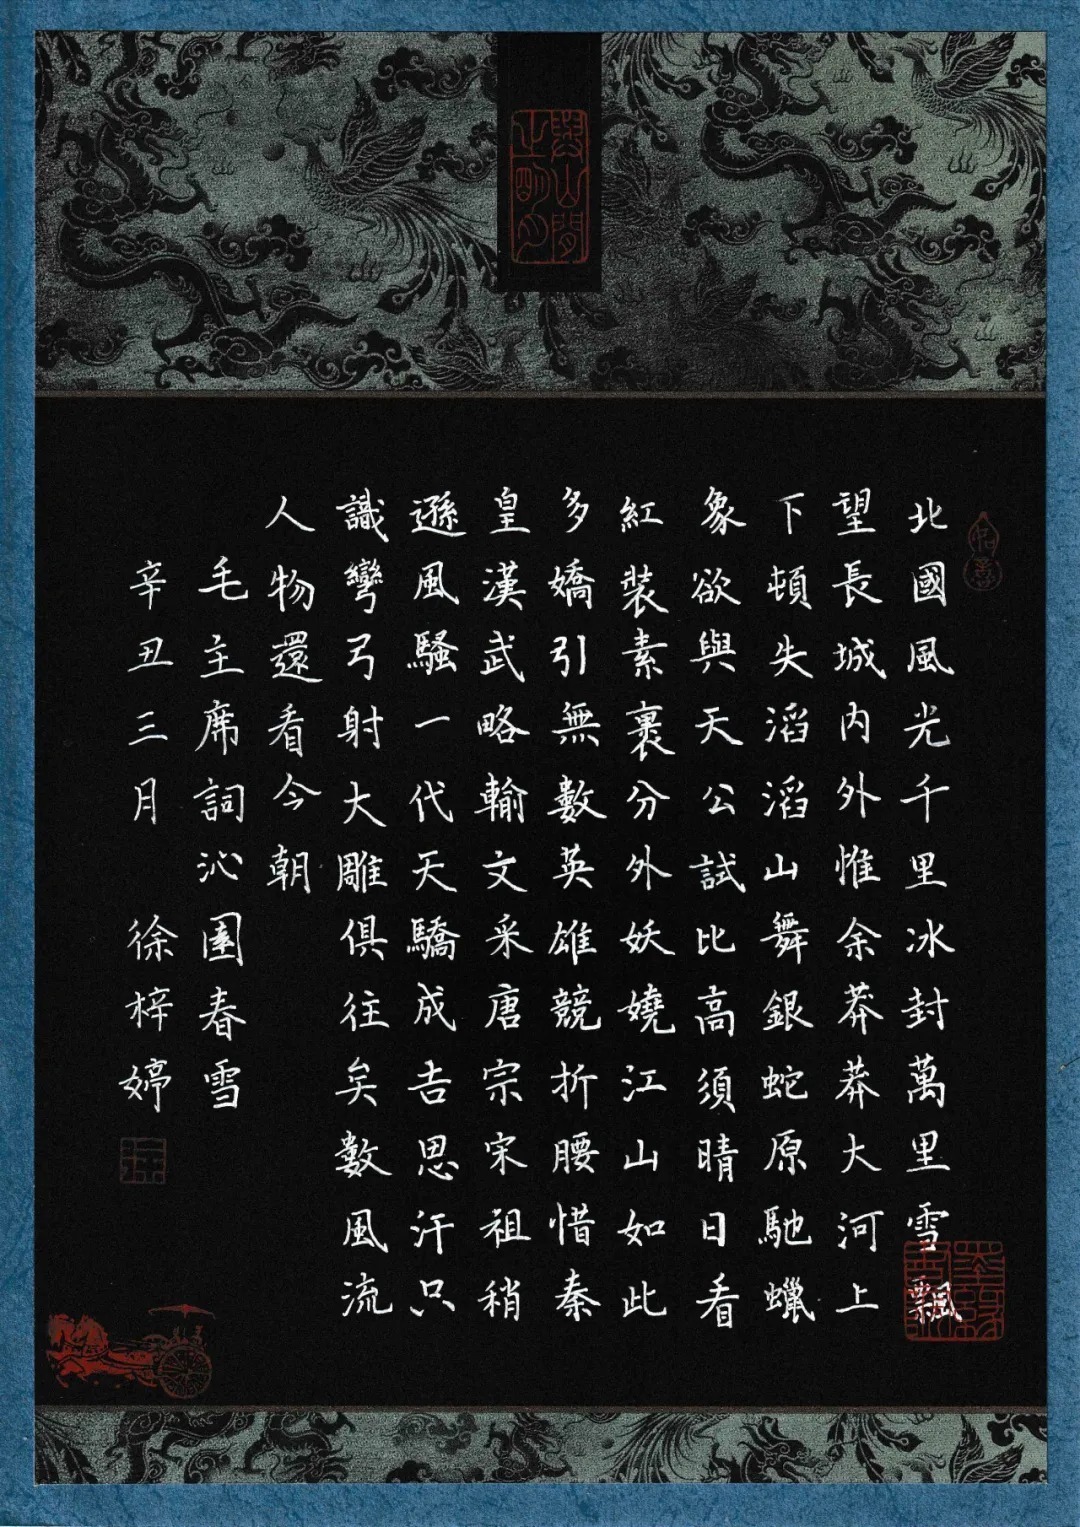 與山間
之明月
北國風光千里冰封萬里雪飄
望長城內外惟余莽莽大河上
下頓失滔滔山舞銀蛇原馳蠟
象欲與天公試比高須晴日看
紅裝素裹分外妖嬈江山如此
多嬌引無數英雄競折腰惜秦
皇漢武略輸文采唐宗宋祖稍
遜風騷一代天驕成吉思汗只
識彎弓射大雕俱往矣數風流
人物還看今朝
毛主席詞沁園春雪
辛丑三月 徐梓婷